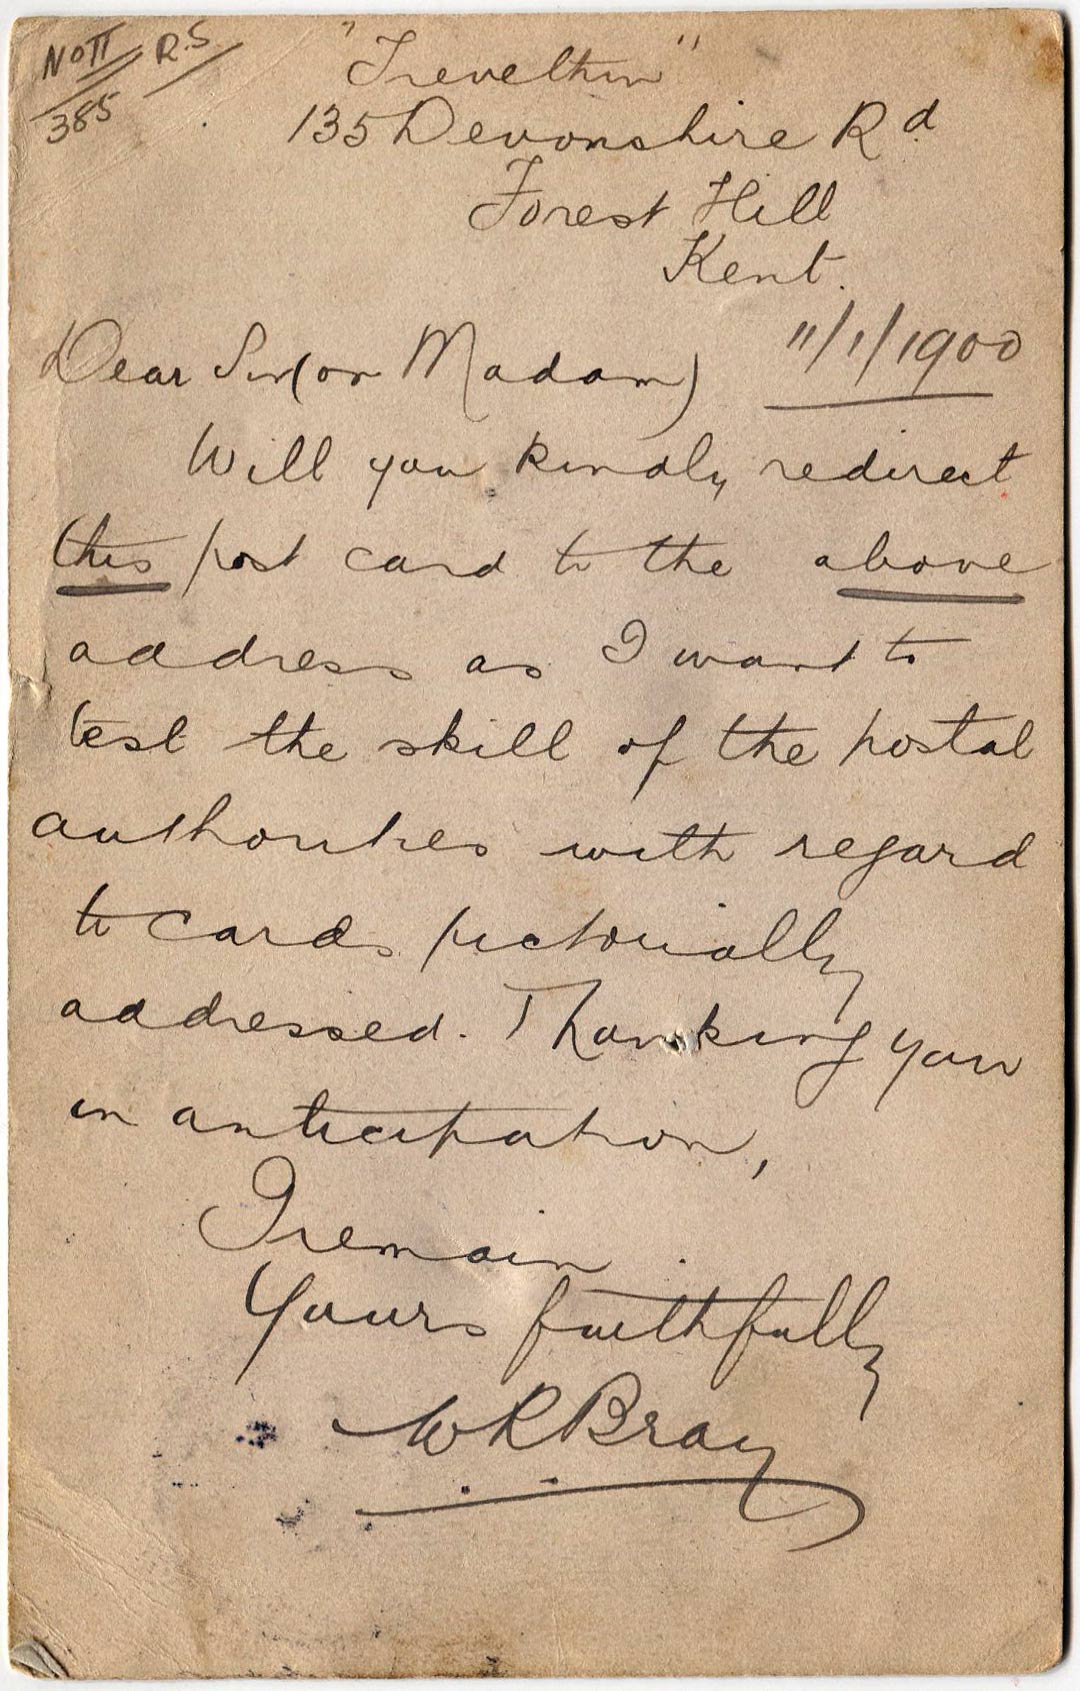 No II R.S
385
"Trevelthin"
135 Devonshire Rd
Forest Hill
Kent.
11/1/1900
Dear Sir (or Madam)
Will you kindly redirect
this post card to the above
address as I want to
test the skill of the postal
authorities with regard
to cards pictorially
addressed. Thanking you
in anticipation,
I remain
Yours faithfully
W R Bray